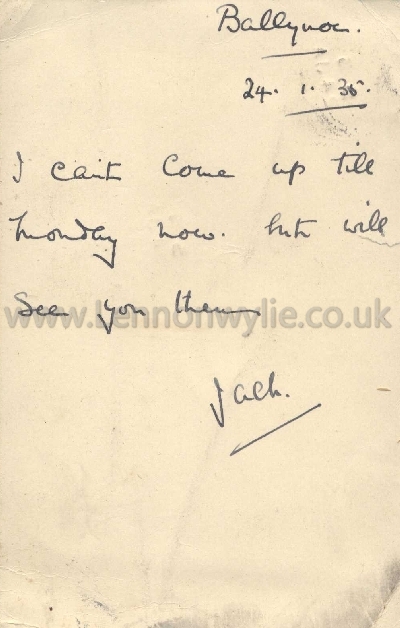 Ballynoe.
24. 1. 35.
I can't come up till
Monday now. but will
see you then
Jack.
www.bennonwylie.co.uk